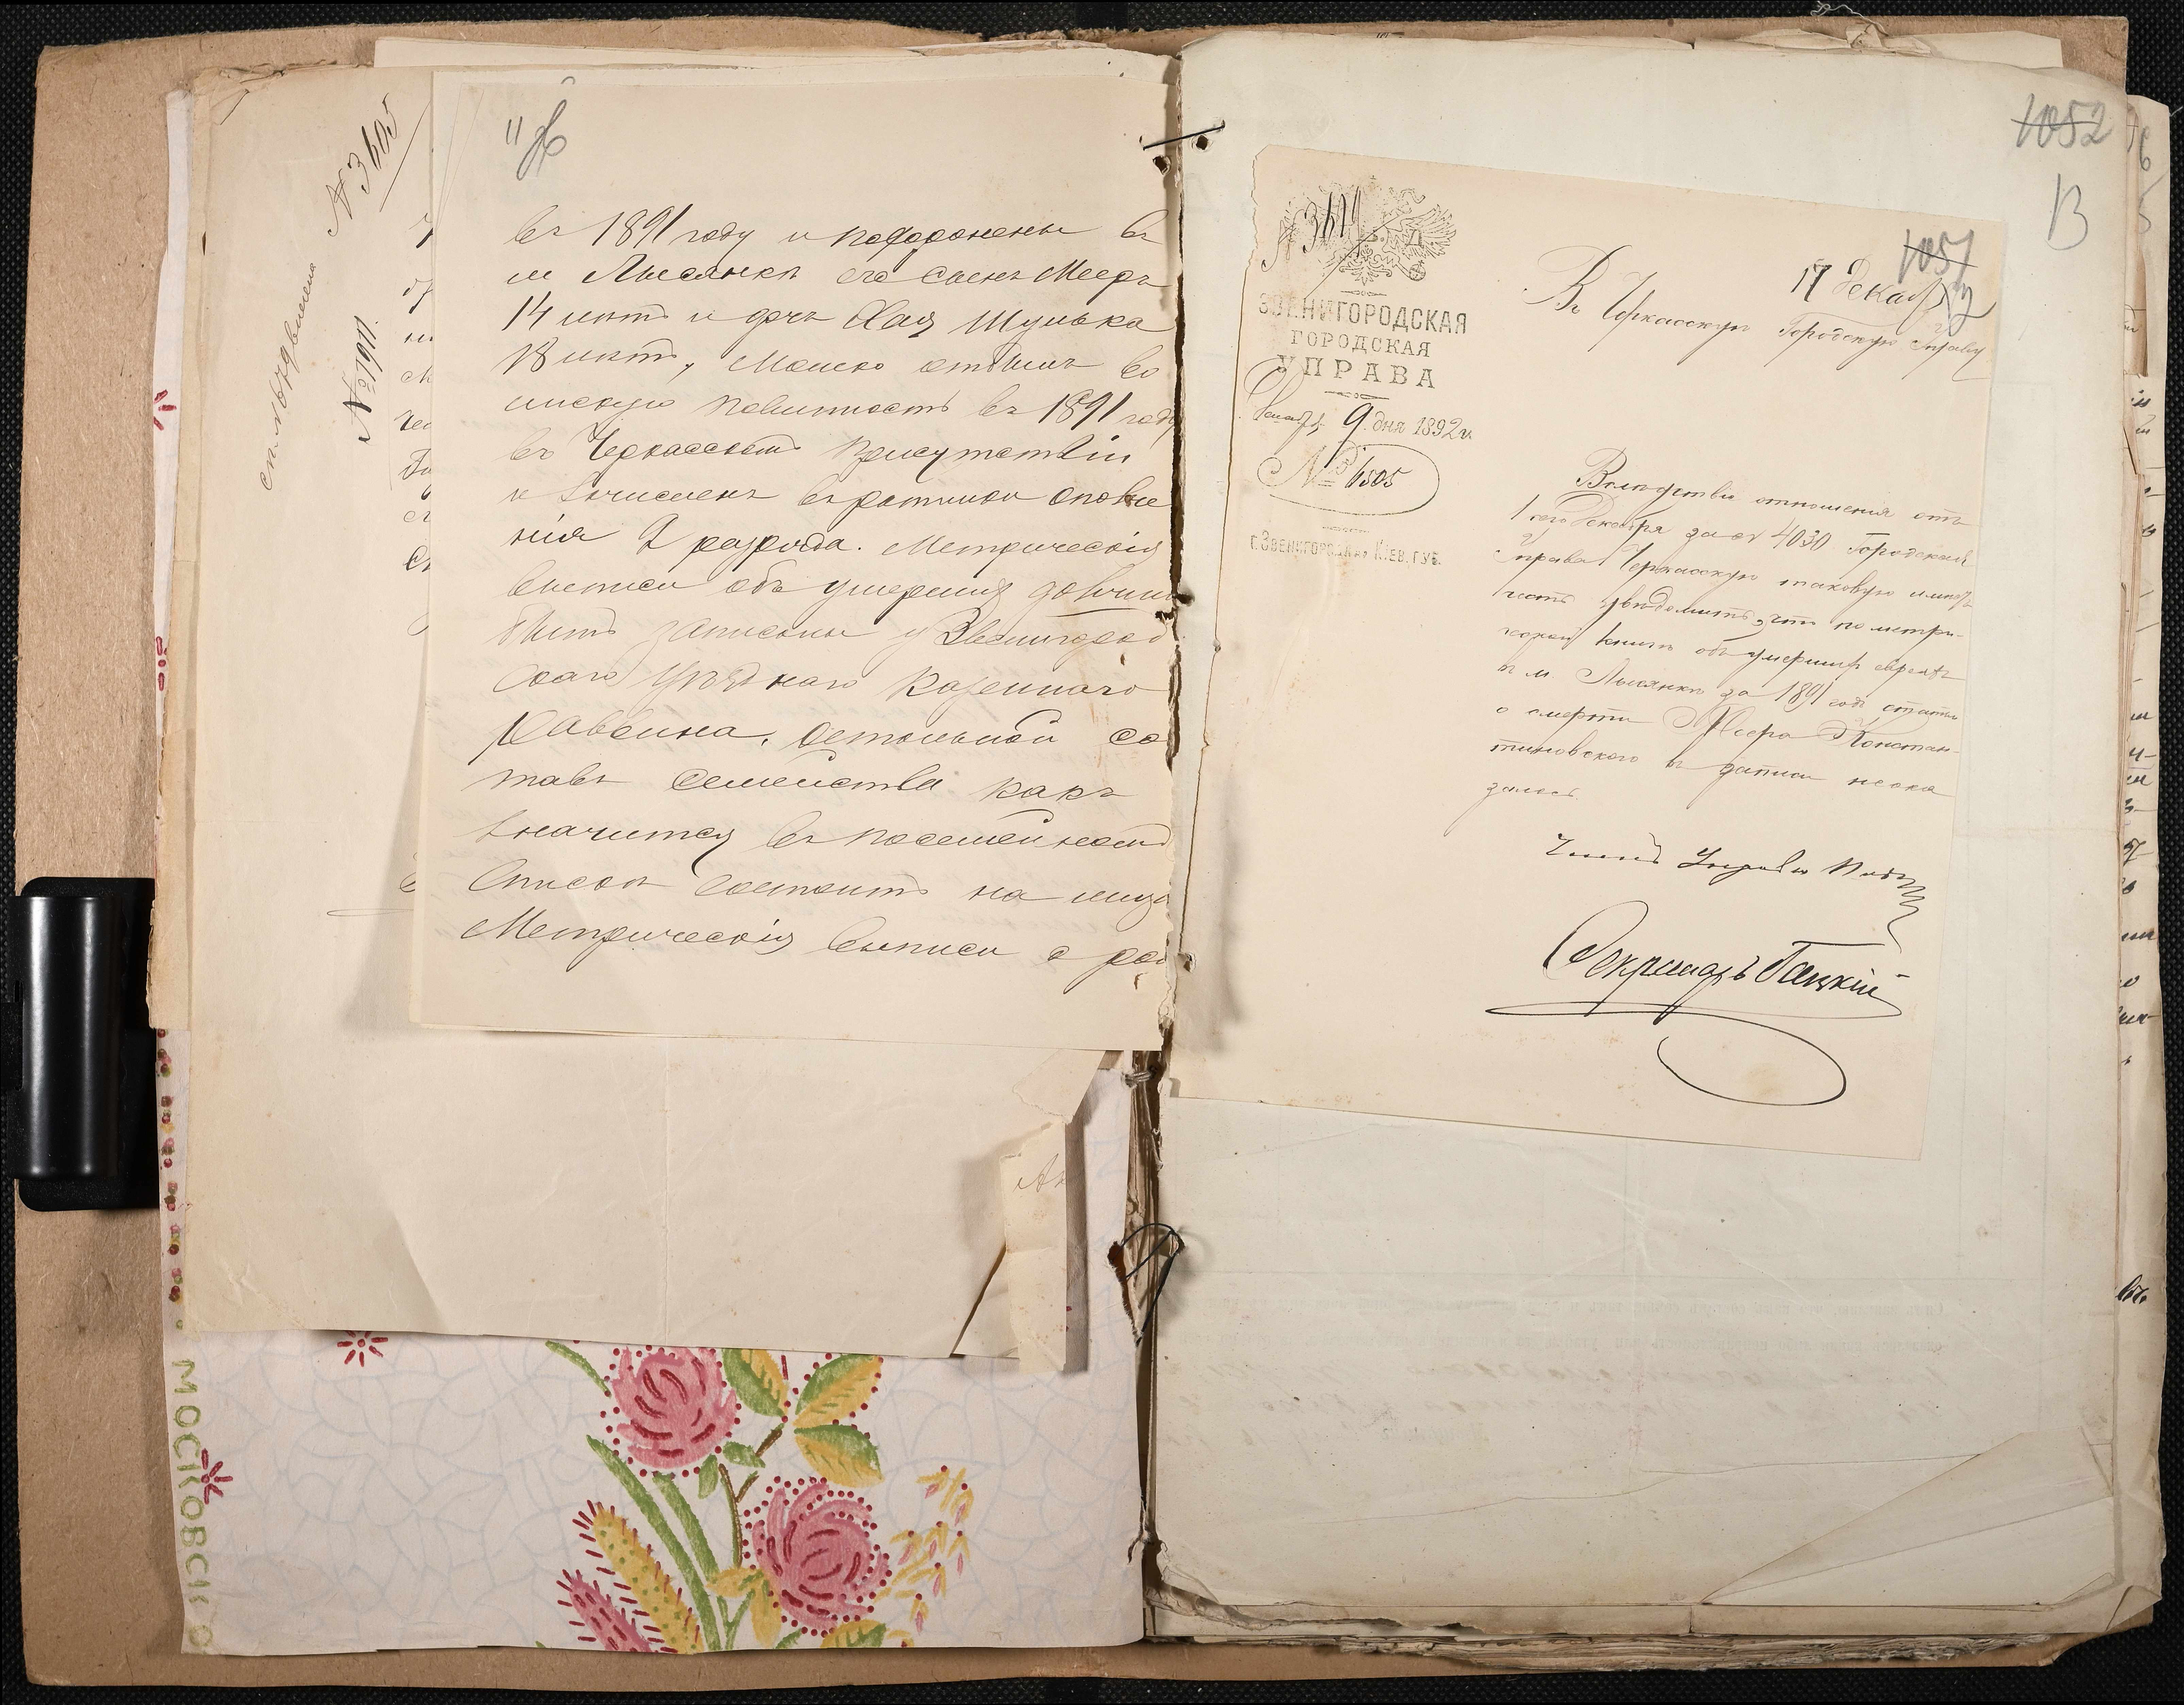 № 3605
№ 1911.
въ 1891 году и похоронены въ
м Лысянкѣ его сынъ Мееръ
14 лѣтъ и дочь Хая Шулька
18 лѣтъ, Мошко отбылъ во
инскую повинность въ 1891 году
въ Черкасскомъ присутствіи
и зачисленъ въ ратники ополче
нія 2 разряда. Метрическія
выписи объ умершихъ должны
быть записаны у Звенигород
скаго уѣзднаго казеннаго
Раввина, остальной со
ставъ семейства какъ
значится въ посемейномъ
списокъ состоитъ на лицо
Метрическія выписи о рож
1052
13
№ 3619
1051
17 Декабр
12
ЗВЕНИГОРОДСКАЯ
ГОРОДСКАЯ
УПРАВА
Декабря 9 дня 1892 г.
№ 6505
г. Звенигородка, Кіев. губ.
Въ Черкасскую Городскую Управу
Вслѣдствіе отношенія отъ
1 сего Декабря за № 4030 Городская
Управа Черкасскую таковую имѣетъ
честь увѣдомить, что по метри-
ческой книгѣ объ умершихъ евреяхъ
в м. Лысянкѣ за 1891 годъ статьи
о смерти Меера Констан-
тиновского в записи неока
залось.
Членъ Управы
Секретарь Гацкій
МОСКОВСКО